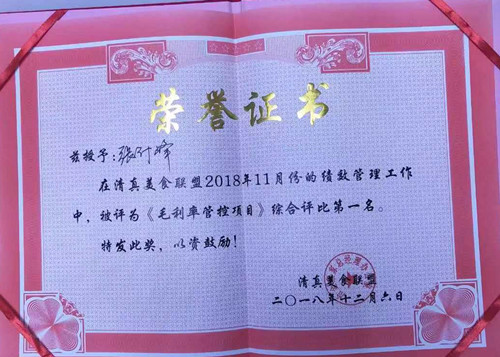 荣誉证书
兹授予：张
在清真美食联盟2018年11月份的绩效管理工作
中，被评为《毛利率管控项目》综合评比第一名。
特发此奖，以资鼓励！
清真美食联盟
二〇一八年十二月六日